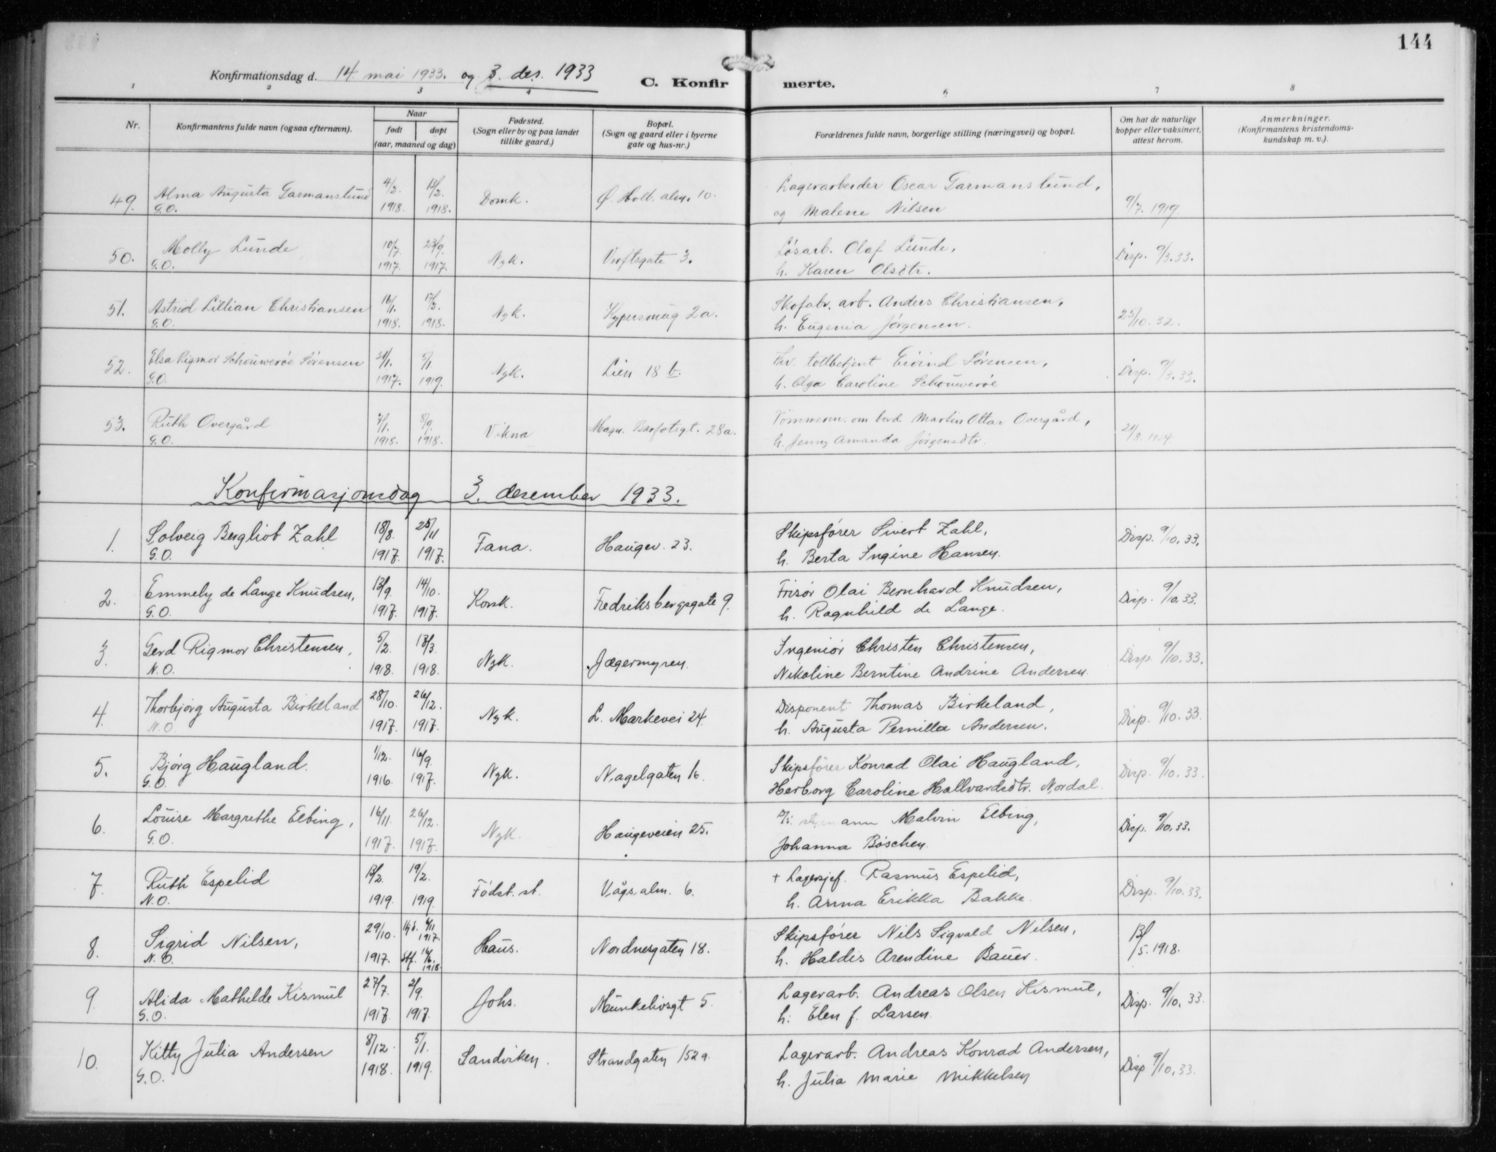 144
Konfirmationsdag d. 14 mai 1933. og 3. des. 1933
C. Konfirmerte.
1 2 3 4 6 7 8
Nr.
Konfirmantens fulde navn (ogsaa efternavn).
Naar
født
døpt
(aar, maaned og dag)
Fødested.
(Sogn eller by og paa landet
tillike gaard.)
Bopæl.
(Sogn og gaard eller i byerne
gate og hus-nr.)
Forældrenes fulde navn, borgerlige stilling (næringsvei) og bopæl.
Om hat de naturlige
kopper eller vaksinert,
attest herom.
Anmerkninger.
(Konfirmantens kristendoms-
kundskap m. v.).
49. Alma Augusta Garmanslund 4/2. 1918. 1918. Domk. Ø. Holl. alm. 10. Lagerarbeider Oscar Garmanslund,
G.O. og Malene Nilsen 9/7. 1919.
50. Molly Lunde 10/7. 1917. 23/9. 1917. Nyk. Verftsgate 3. Løsarb. Olaf Lunde, Disp. 9/3.33.
G.O. h. Karen Olsdtr.
51. Astrid Lillian Christiansen 1918. 17/3. 1918. Nyk. 2a. Skofabr. arb. Anders Christiansen,
G.O. h. Eugenia Jørgensen. 25/10. 32.
52. Elsa Rigmor Schouwerøe Sørensen 1917. 5/1 1919. Nyk. Lien 18 b. tollbetjent Eivind Sørensen, Disp. 9/3.33.
G.O. h. Olga Caroline Schouwerøe
53. Ruth Overgård 1918. 8/9. 1918. Vikna Magn. Barfotsgt. 28a. Martin Ottar Overgård,
G.O. h. Jenny Amanda Jørgensdtr.
Konfirmasjonsdag 3. desember 1933.
1. Solveig Bergliot Zahl 18/8. 1917. 25/11 1917. Fana. Haugev. 23. Skipsfører Sivert Zahl, Disp. 9/10.33.
G.O. h. Berta Ingine Hansen.
2. Emmely de Lange Knudsen, 13/9. 1917. 14/10. 1917. Korsk. Fredriksbergsgate 9. Frisør Olai Bernhard Knudsen, Disp. 9/10.33.
G.O. h. Ragnhild de Lange.
3. Gerd Rigmor Christensen, 5/2. 1918. 13/3. 1918. Nyk. Jægermyren. Ingeniør Christen Christensen, Disp. 9/10.33.
N.O. Nikoline Berntine Andrine Andersen
4. Thorbjørg Augusta Birkeland 28/10. 1917. 26/12. 1917. Nyk. L. Markevei 24 Disponent Thomas Birkeland, Disp. 9/10.33.
N.O. h. Augusta Pernilla Andersen.
5. Bjørg Haugland. 1/12. 1916. 16/9. 1917. Nyk. Nagelgaten 16. Skipsfører Konrad Olai Haugland, Disp. 9/10.33.
G.O. Herborg Caroline Hallvardsdtr. Nordal.
6. Louise Margrethe Elbing, 16/11. 1917. 26/12. 1917. Nyk. Haugeveien 25. Malvin Elbing, Disp. 9/10.33.
G.O. Johanna Bøschen
7. Ruth Espelid 12/2. 1919. 19/2. 1919 Fødst. st. Vågs. alm. 6. + Lagersjef. Rasmus Espelid, Disp. 9/10.33.
N.O. h. Anna Erikka Bakke.
8. Sigrid Nilsen, 29/10. 1917. 1917. 1918. Haus. Nordnesgaten 18. Skipsfører Nils Sigvald Nilsen, 13/5. 1918.
N.O. h. Haldis Arendine Bauer.
9 Alida Mathilde Kismul 27/7. 1917 2/9. 1917. Johs. Munkelivsgt 5. Lagerarb. Andreas Olsen Kismul, Disp. 9/10.33.
G.O. h. Elen f. Larsen.
10. Kitty Julia Andersen 8/12. 1918. 5/1. 1919. Sandviken. Strandgaten 152a. Lagerarb. Andreas Konrad Andersen, Disp 9/10.33.
G.O. h. Julia Marie Mikkelsen